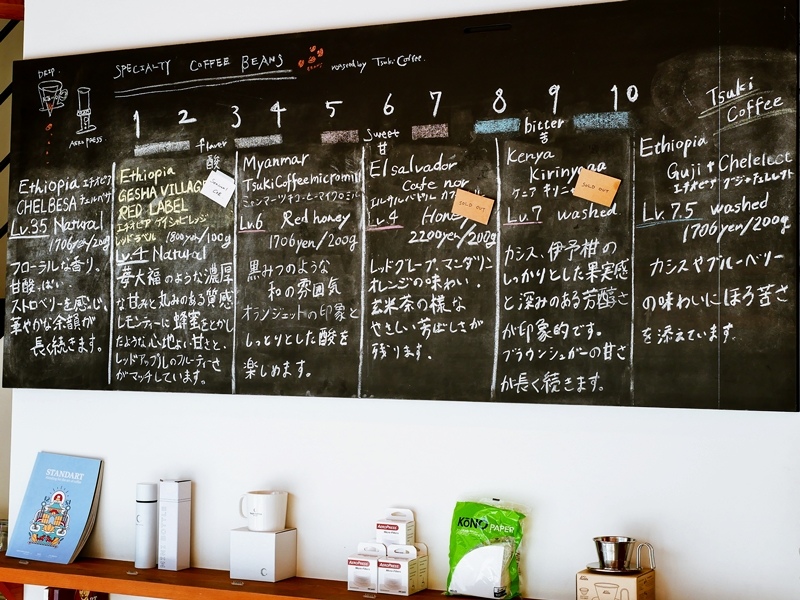 DRIP
AEROPRESS
SPECIALTY COFFEE BEANS
roasted by Tsuki Coffee.
Tsuki
Coffee
1 2 3 4 5 6 7 8 9 10
flavor
酸
sweet
甘
bitter
苦
Ethiopia エチオピア
CHELBESA チェルベサ
Lv.3.5 Natural
1706yen/200g
フローラルな香り。
甘酸っぱい
ストロベリーを感じ、
華やかな余韻が
長く続きます。
Ethiopia
GESHA VILLAGE
RED LABEL
エチオピア ゲイシャビレッジ
レッドラベル 1800yen/100g
Lv.4 Natural
苺大福のような濃厚
な甘みと丸みのある質感
レモンティーに蜂蜜をとかし
たような心地よい甘さと、
レッドアップルのフルーティーさ
がマッチしています。
Myanmar
TsukiCoffeemicromill
ミャンマーツキコーヒーマイクロミル
Lv.6 Red honey
1706yen/200g
黒みつのような
和の雰囲気
オランジェットの印象と
しっとりとした酸を
楽しめます。
El salvador
Cafe nor
SOLD OUT
Lv.4 Hone
2200yen/200g
レッドグレープ・マンダリン
オレンジの味わい。
玄米茶の様な
やさしい芳ばしさが
残ります。
Kenya
Kirinyaga
ケニア キリニ
SOLD OUT
Lv.7 washed
カシス、伊予柑の
しっかりとした果実感
と深みのある芳醇さ
が印象的です。
ブラウンシュガーの甘さ
が長く続きます。
Ethiopia
Guji + Chelelect
エチオピア グジ・チェレレクト
Lv.7.5 washed
1706yen/200g
カシスやブルーベリー
の味わいにほろ苦さ
を添えています。
STANDART
AEROPRESS
AEROPRESS
AEROPRESS
KŌNO PAPER